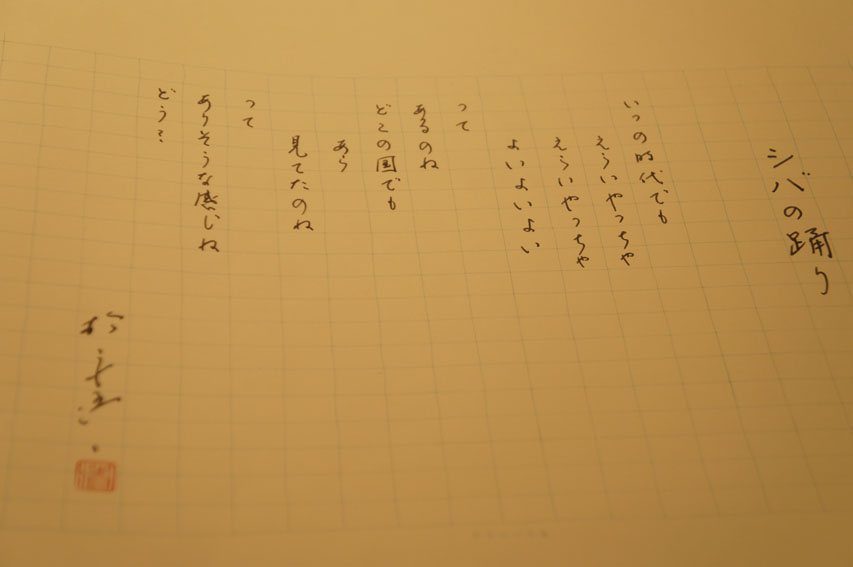 シバの踊り
いつの時代でも
えらいやっちゃ
えらいやっちゃ
よいよいよい
って
あるのね
どこの国でも
あら
見てたのね
って
ありそうな感じね
どう…